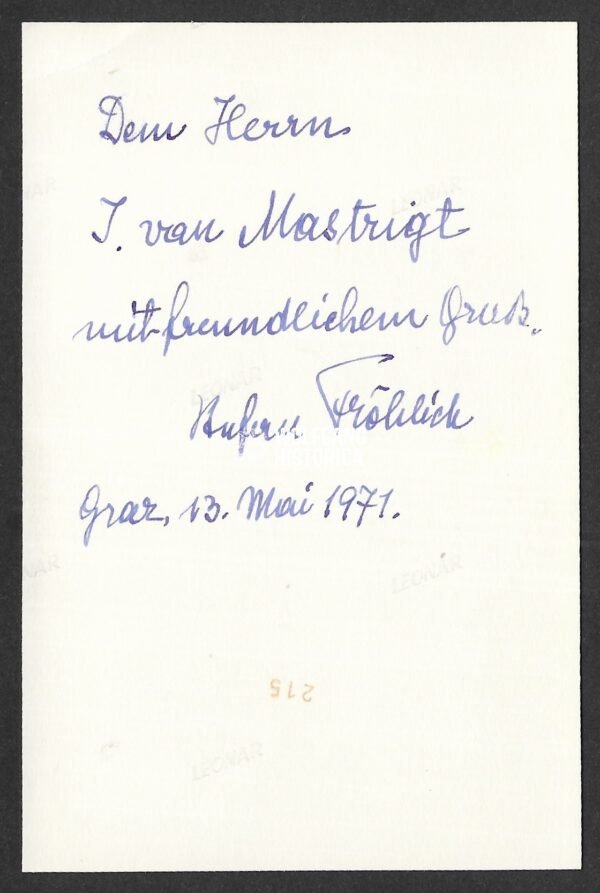 Dem Herrn
J. van Mastrigt
mit freundlichem Gruß.
Stefan Fröhlich
Graz, 13. Mai 1971.
LEONAR
LEONAR
LEONAR
LEONAR
215
LEONAR
HISTORICA